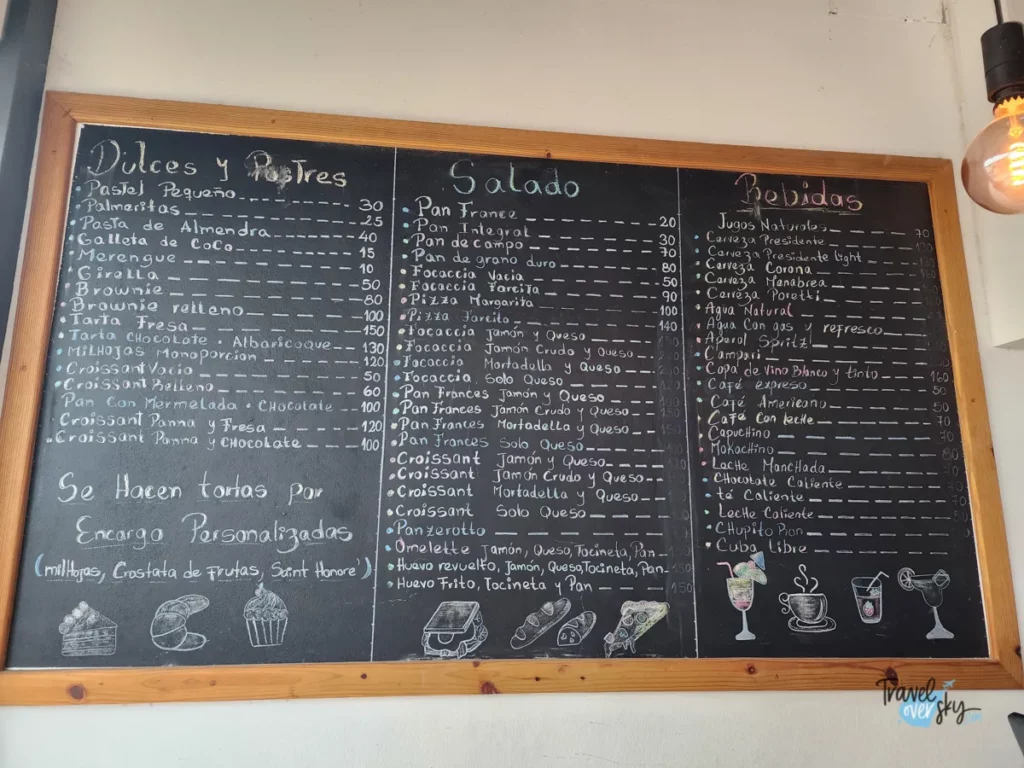 Dulces y Postres
Pastel Pequeño 30
Palmeritas 25
Pasta de Almendra 40
Galleta de CoCo 15
Merengue 10
Girella 50
Brownie 80
Brownie relleno 100
Tarta Fresa 150
Tarta CHOCOLATE . Albaricoque 130
MilHojas Monoporcion 120
Croissant Vacio 50
Croissant Relleno 60
Pan Con Mermelada . CHOCOLATE 100
Croissant Panna y Fresa 120
Croissant Panna y CHOCOLATE 100
Se Hacen tortas Por
Encargo Personalizadas
(milHojas, Crostata de Frutas, Saint Honore')
Salado
Pan France 20
Pan Integral 30
Pan de campo 70
Pan de grano duro 80
Focaccia Vacia 50
Focaccia Farcita 90
Pizza Margarita 100
Pizza Farcita 140
Focaccia Jamón y Queso
Focaccia Jamón Crudo y Queso
Focaccia Mortadella y Queso
Focaccia Solo Queso
Pan Frances Jamón y Queso
Pan Frances Jamón Crudo y Queso
Pan Frances Mortadella y Queso
Pan Frances Solo Queso
Croissant Jamón y Queso
Croissant Jamón Crudo y Queso
Croissant Mortadella y Queso
Croissant Solo Queso
Panzerotto
Omelette Jamón, Queso, Tocineta, Pan
Huevo revuelto, Jamón, Queso, Tocineta, Pan
Huevo Frito, Tocineta y Pan 150
Bebidas
Jugos Naturales 70
Cerveza Presidente
Cerveza Presidente light
Cerveza Corona
Cerveza Menabrea
Cerveza Poretti
Agua Natural
Agua Con gas y refresco
Aperol Spritz
Campari
Copa de Vino Blanco y tinto 160
Café expreso 50
Café Americano 50
Café Con leche 70
Capuchino
Mokachino 80
Leche Manchada
Chocolate Caliente
té Caliente
Leche Caliente
Chupito Ron
Cuba libre
Travel
over sky